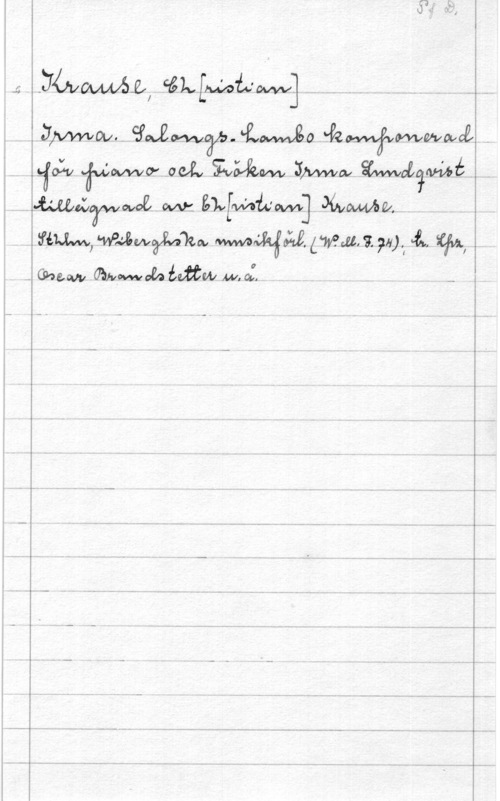 Pf D.
Krause, Ch[ristian]
Irma. Salongs-hambo komponerad
för piano och Fröken Irma Lundqvist
tillägnad av Ch[ristian] Krause.
Sthlm, Wiberghska musikförl. (W. M. F. 74); tr. Lpz,
Oscar Brandstetter u.å.